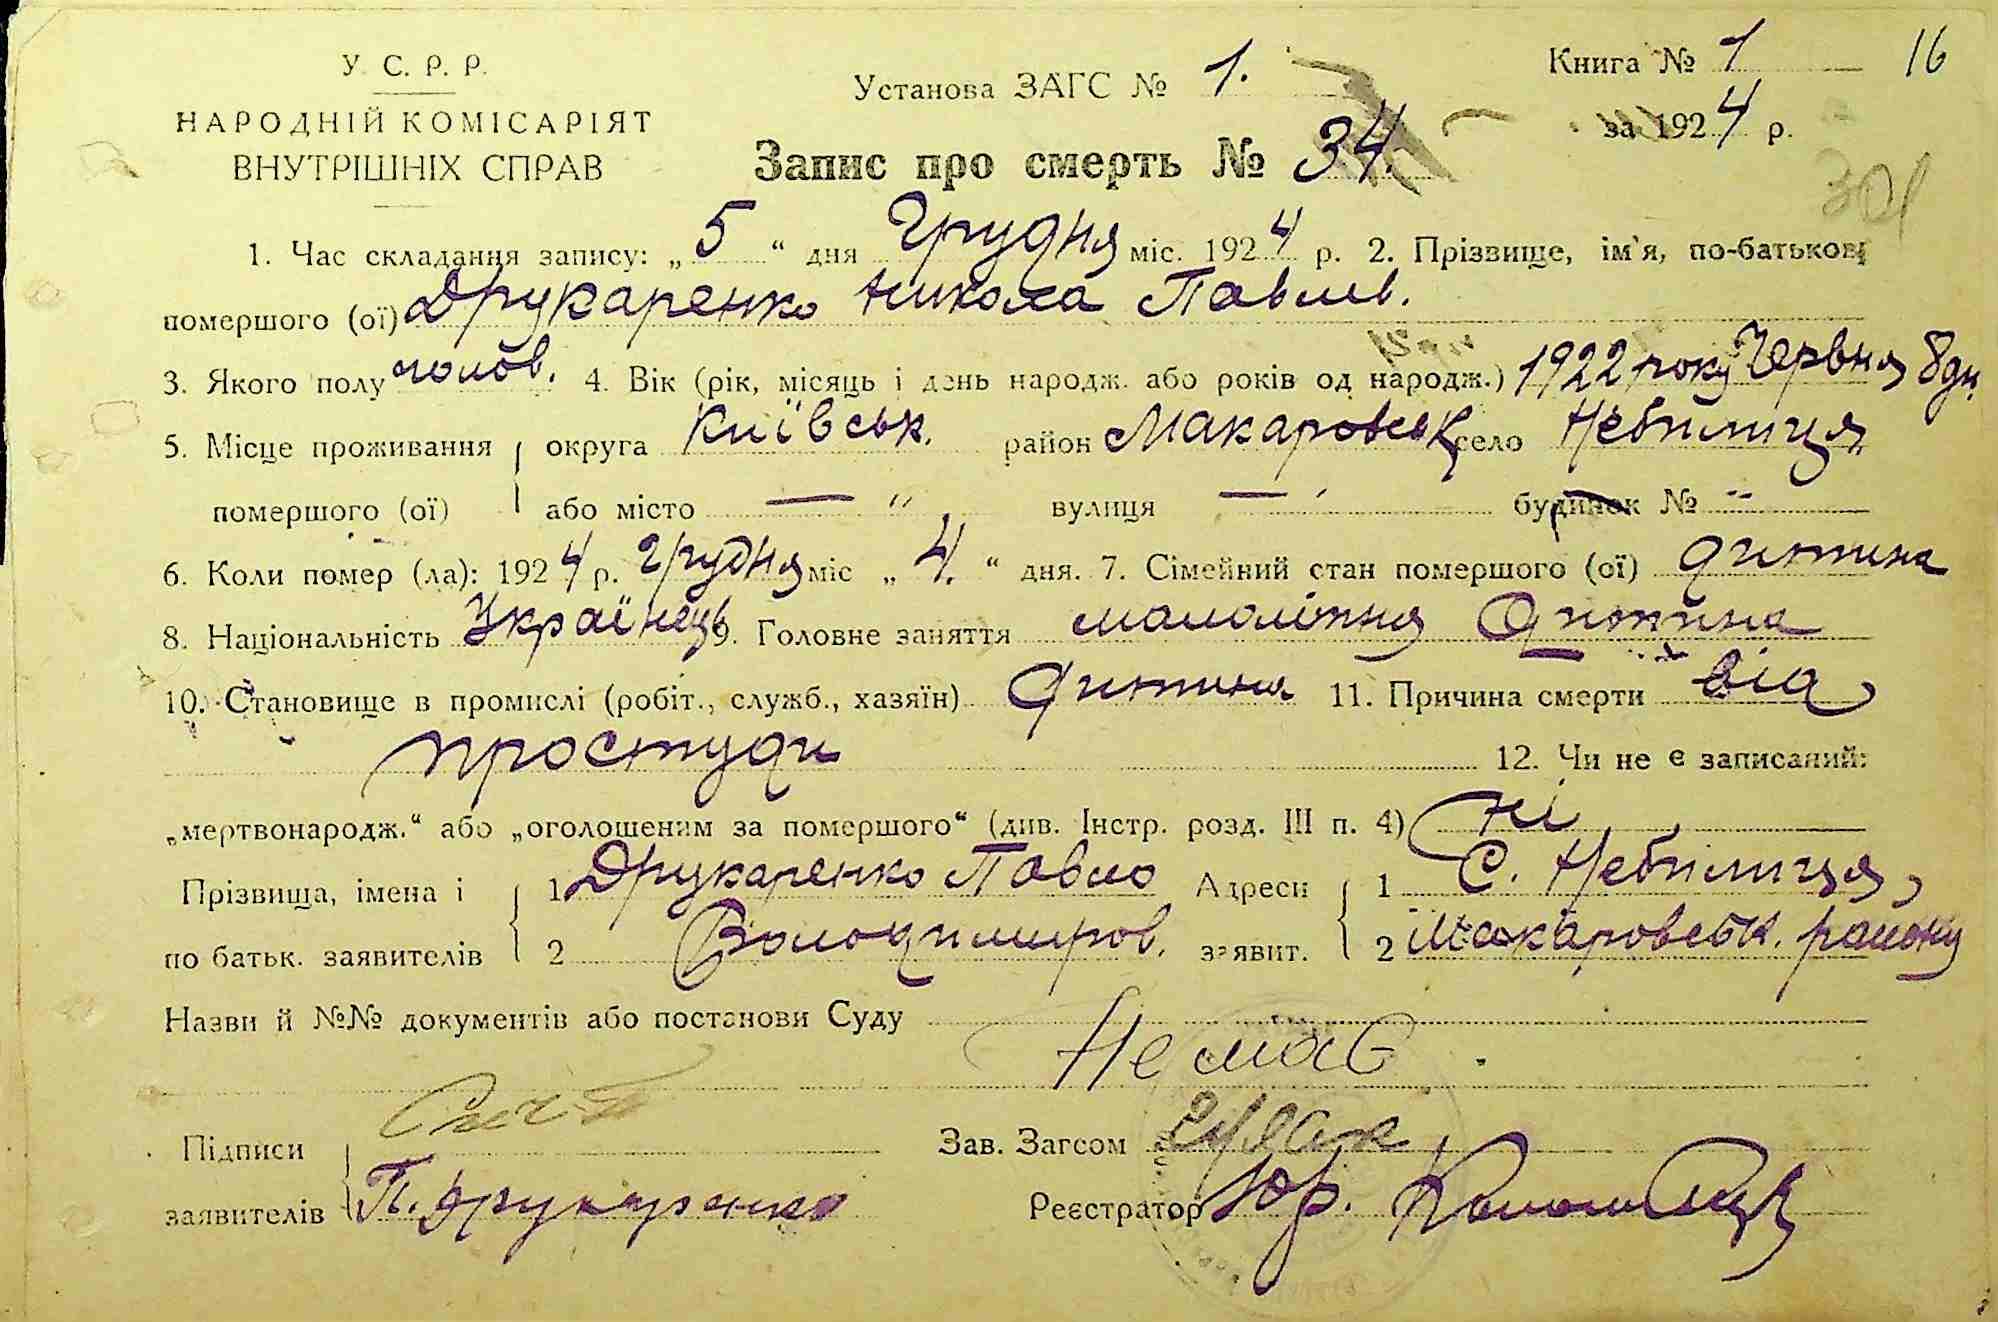 У. С. Р. Р.
НАРОДНІЙ КОМІСАРІЯТ
ВНУТРІШНІХ СПРАВ
Установа ЗАГС № 1.
Книга № 1
16
за 1924 р.
Запис про смерть № 34.
301
1. Час складання запису: „5“ дня Грудня міс. 1924 р. 2. Прізвище, ім'я, по-батькові
помершого (ої) Друкаренко Микола Павлів.
3. Якого полу чолов. 4. Вік (рік, місяць і день народж. або років од народж.) 1922 року Червня 8 дн.
5. Місце проживання округа Київськ. район Макаровськ село Небилиця
помершого (ої) або місто — „ вулиця — будинок № „
6. Коли помер (ла): 1924 р. Грудня міс „4.“ дня. 7. Сімейний стан помершого (ої) дитина
8. Національність Українець 9. Головне заняття малолітня дитина
10. Становище в промислі (робіт., служб., хазяїн) дитина 11. Причина смерти від
простуди 12. Чи не є записаний:
„мертвонародж.“ або „оголошеним за помершого“ (див. Інстр. розд. III п. 4) ні
Прізвища, імена і 1 Друкаренко Павло Адреси 1 С. Небилиця,
по батьк. заявителів 2 Володимиров. заявит. 2 Макаровськ. району
Назви й №№ документів або постанови Суду
Не має
Підписи Зав. Загсом
заявителів П. Друкаренко Реєстратор Юр.